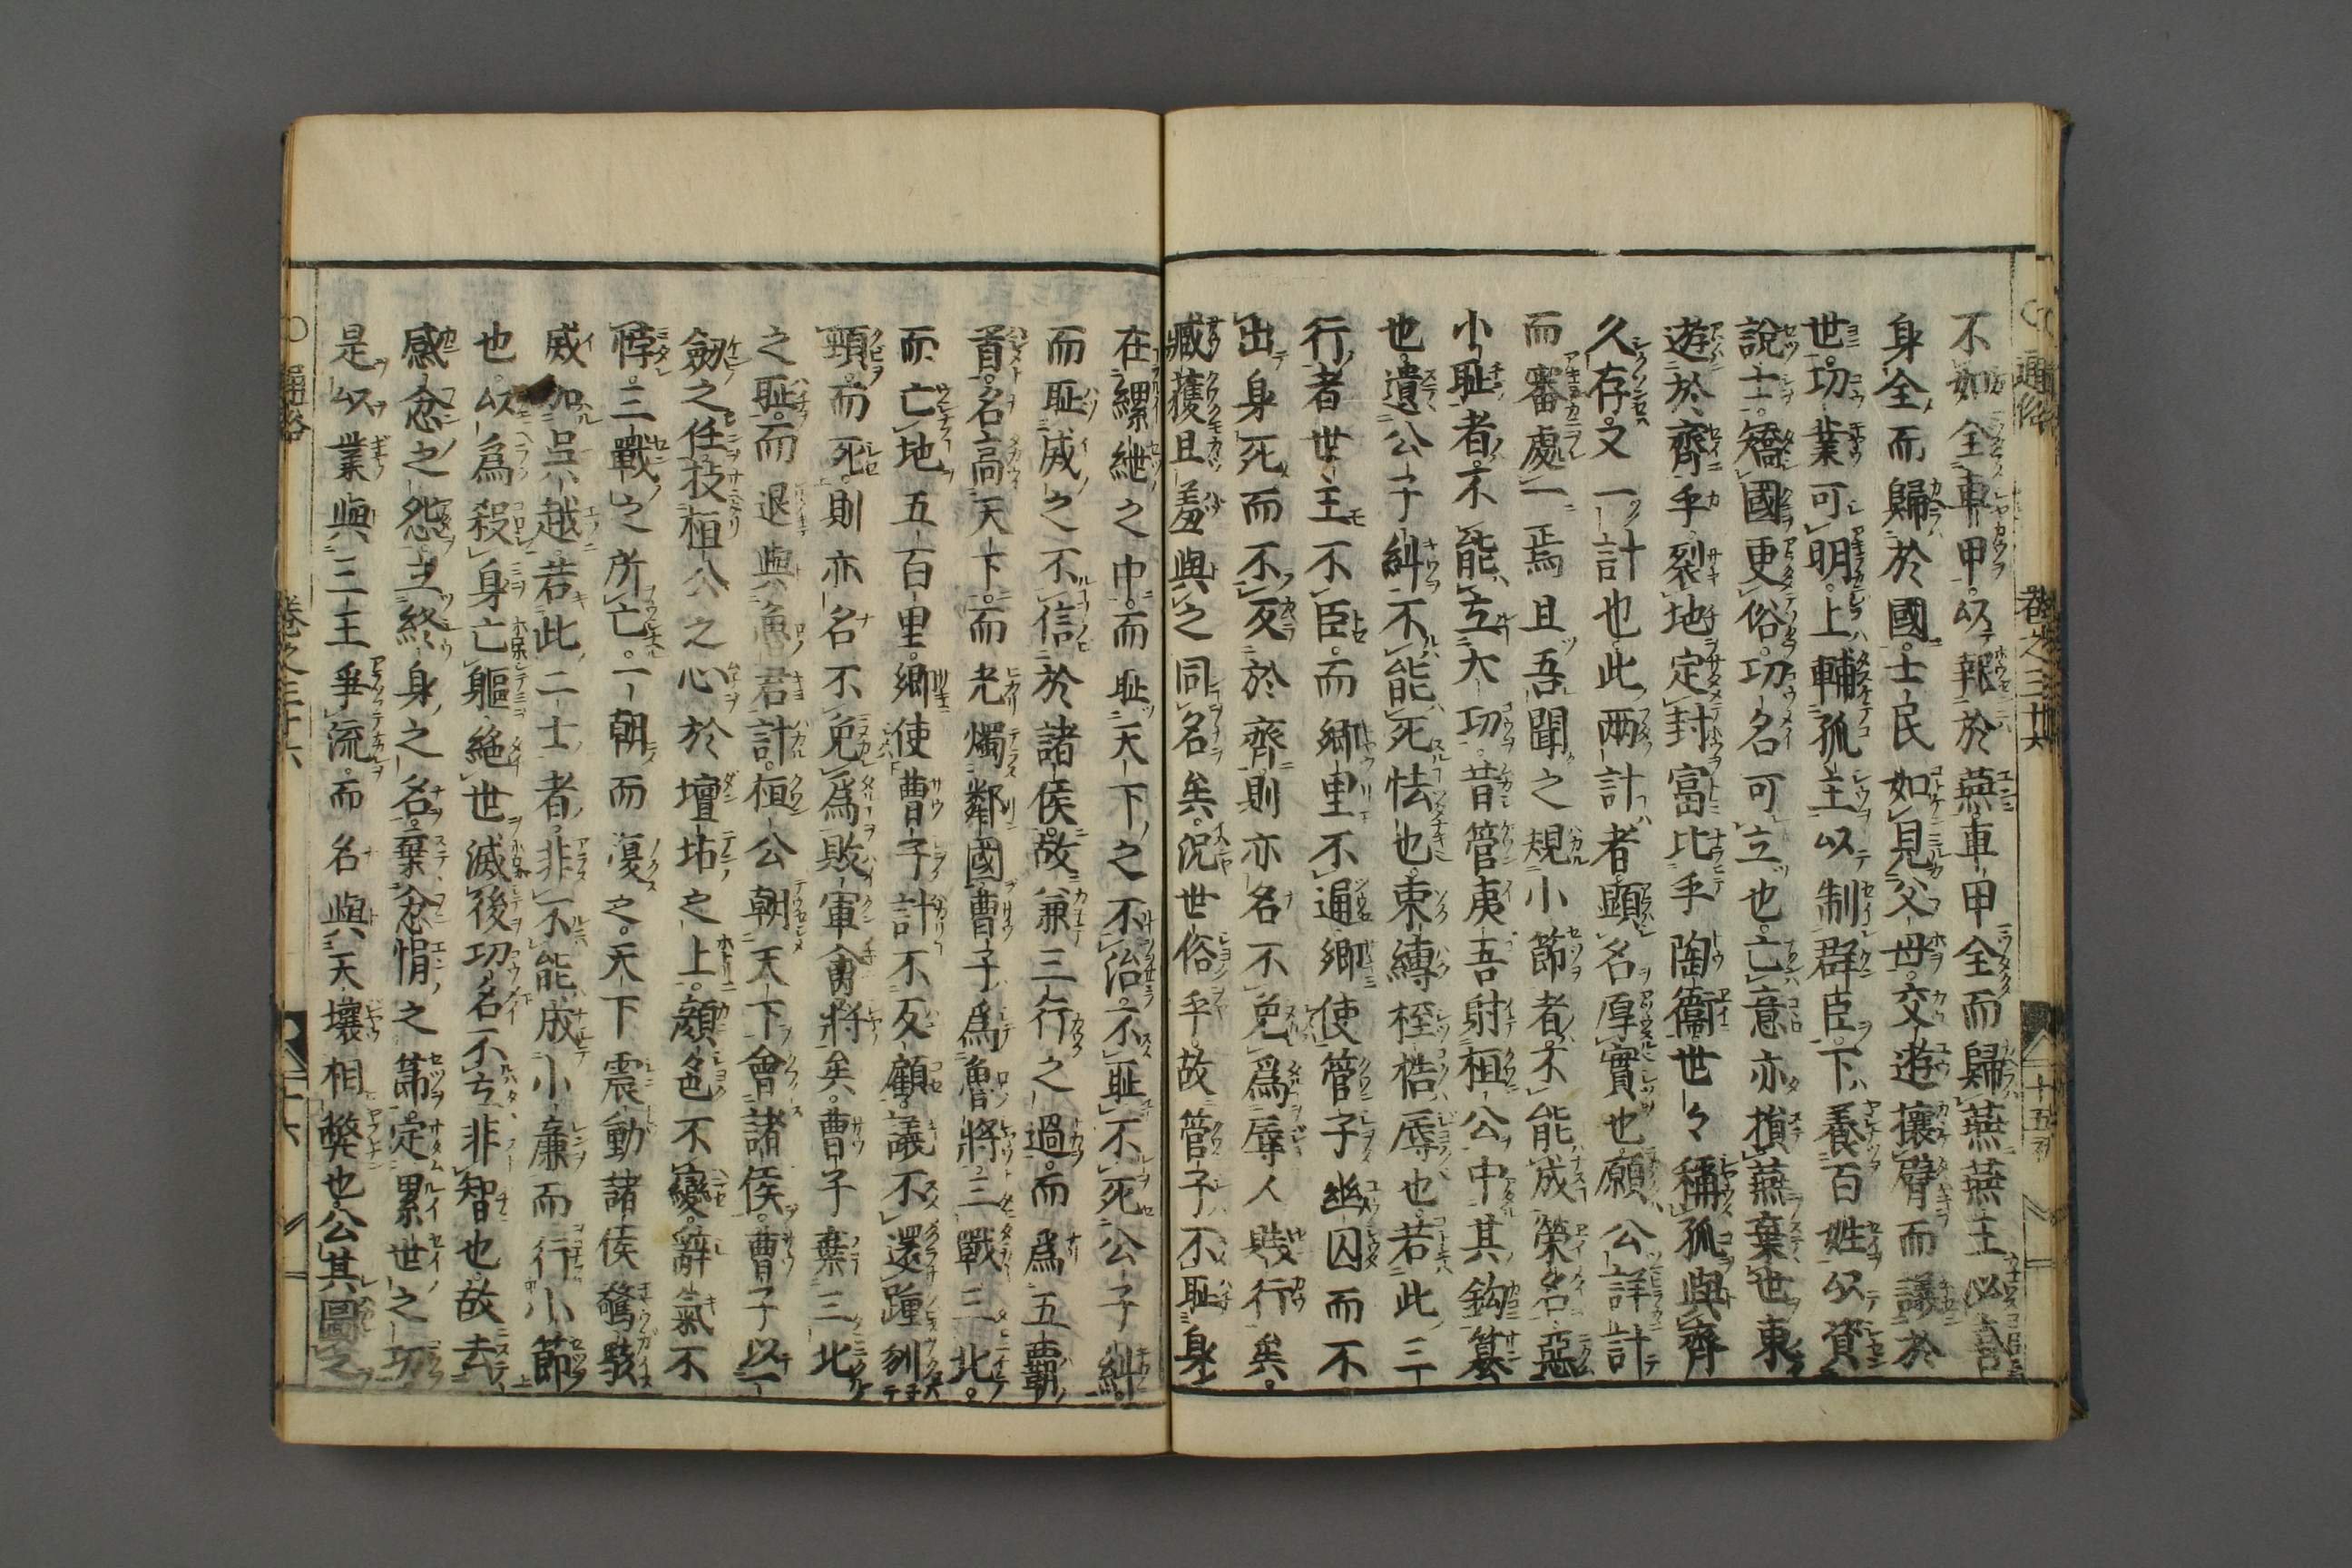 通俗 卷之三十六 十五
不如全車甲。以報於燕車甲全而歸燕燕王必喜
身全而歸於國。士民如見父母。交遊攘臂而議於
世。功業可明。上輔孤主以制群臣。下養百姓以資
說士。矯國更俗。功名可立也。亡意亦損燕棄世東
遊於齊乎。裂地定封富比乎陶衞世々稱孤與齊
久存。又一計也。此兩計者。顯名厚實也。願公詳計
而審處一焉且吾聞之規小節者。不能成榮名惡
小耻者。不能立大功。昔管夷吾射桓公中其鈎篡
也。遺公子糾不能死怯也。束縛桎梏辱也。若此三
行者世主不臣。而鄉里不通鄉使管子幽囚而不
出身死而不反於齊則亦名不免爲辱人賤行矣。
臧獲且羞與之同名矣。況世俗乎。故管子不耻身
在縲紲之中。而耻天下之不治。不耻不死公子糾。
而耻威之不信於諸侯。故兼三行之過。而爲五霸
首。名高天下。而光燭鄰國曹子爲魯將。三戰三北。
而亡地五百里。鄉使曹子計不反顧。議不還踵刎
頸。而死。則亦名不免爲敗軍禽將矣。曹子棄三北
之耻。而退與魯君計。桓公朝天下會諸侯。曹子以一
劔之任。技桓公之心於壇坫之上。顔色不變。辭氣不
悖。三戰之所亡。一朝而復之。天下震動諸侯驚駭
威加吳越。若此二士者。非不能成小廉而行小節
也。以爲殺身亡軀絶世滅後功名不立非智也。故去
感忿之怨立終身之名。棄忿悁之節。定累世之功
是以業與三王爭流。而名與天壤相弊也。公其圖之
通俗 卷之三十六 十六